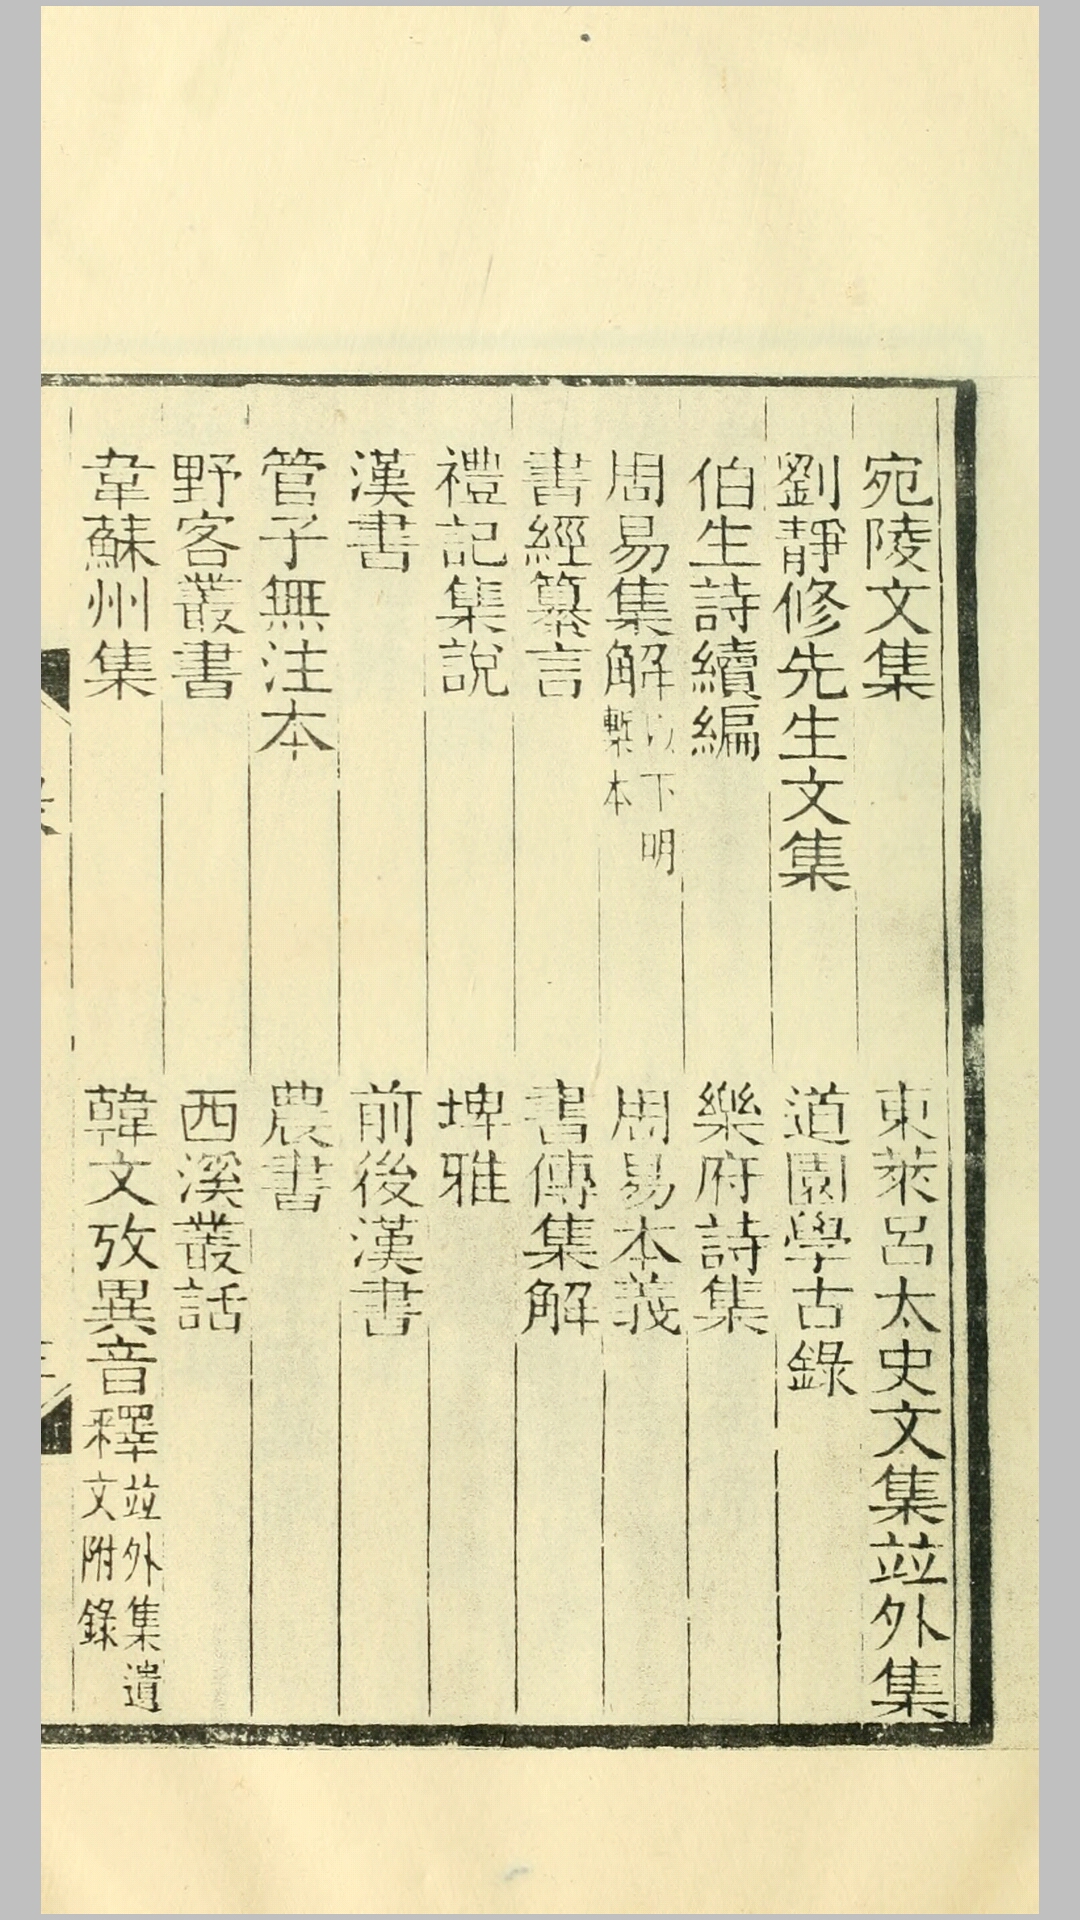 宛陵文集
東萊呂太史文集竝外集
劉靜修先生文集
道園學古錄
伯生詩續編
樂府詩集
周易集解以下明槧本
周易本義
書經纂言
書傳集解
禮記集說
埤雅
漢書
前後漢書
管子無注本
農書
野客叢書
西溪叢話
韋蘇州集
韓文攷異音釋竝外集遺文附錄